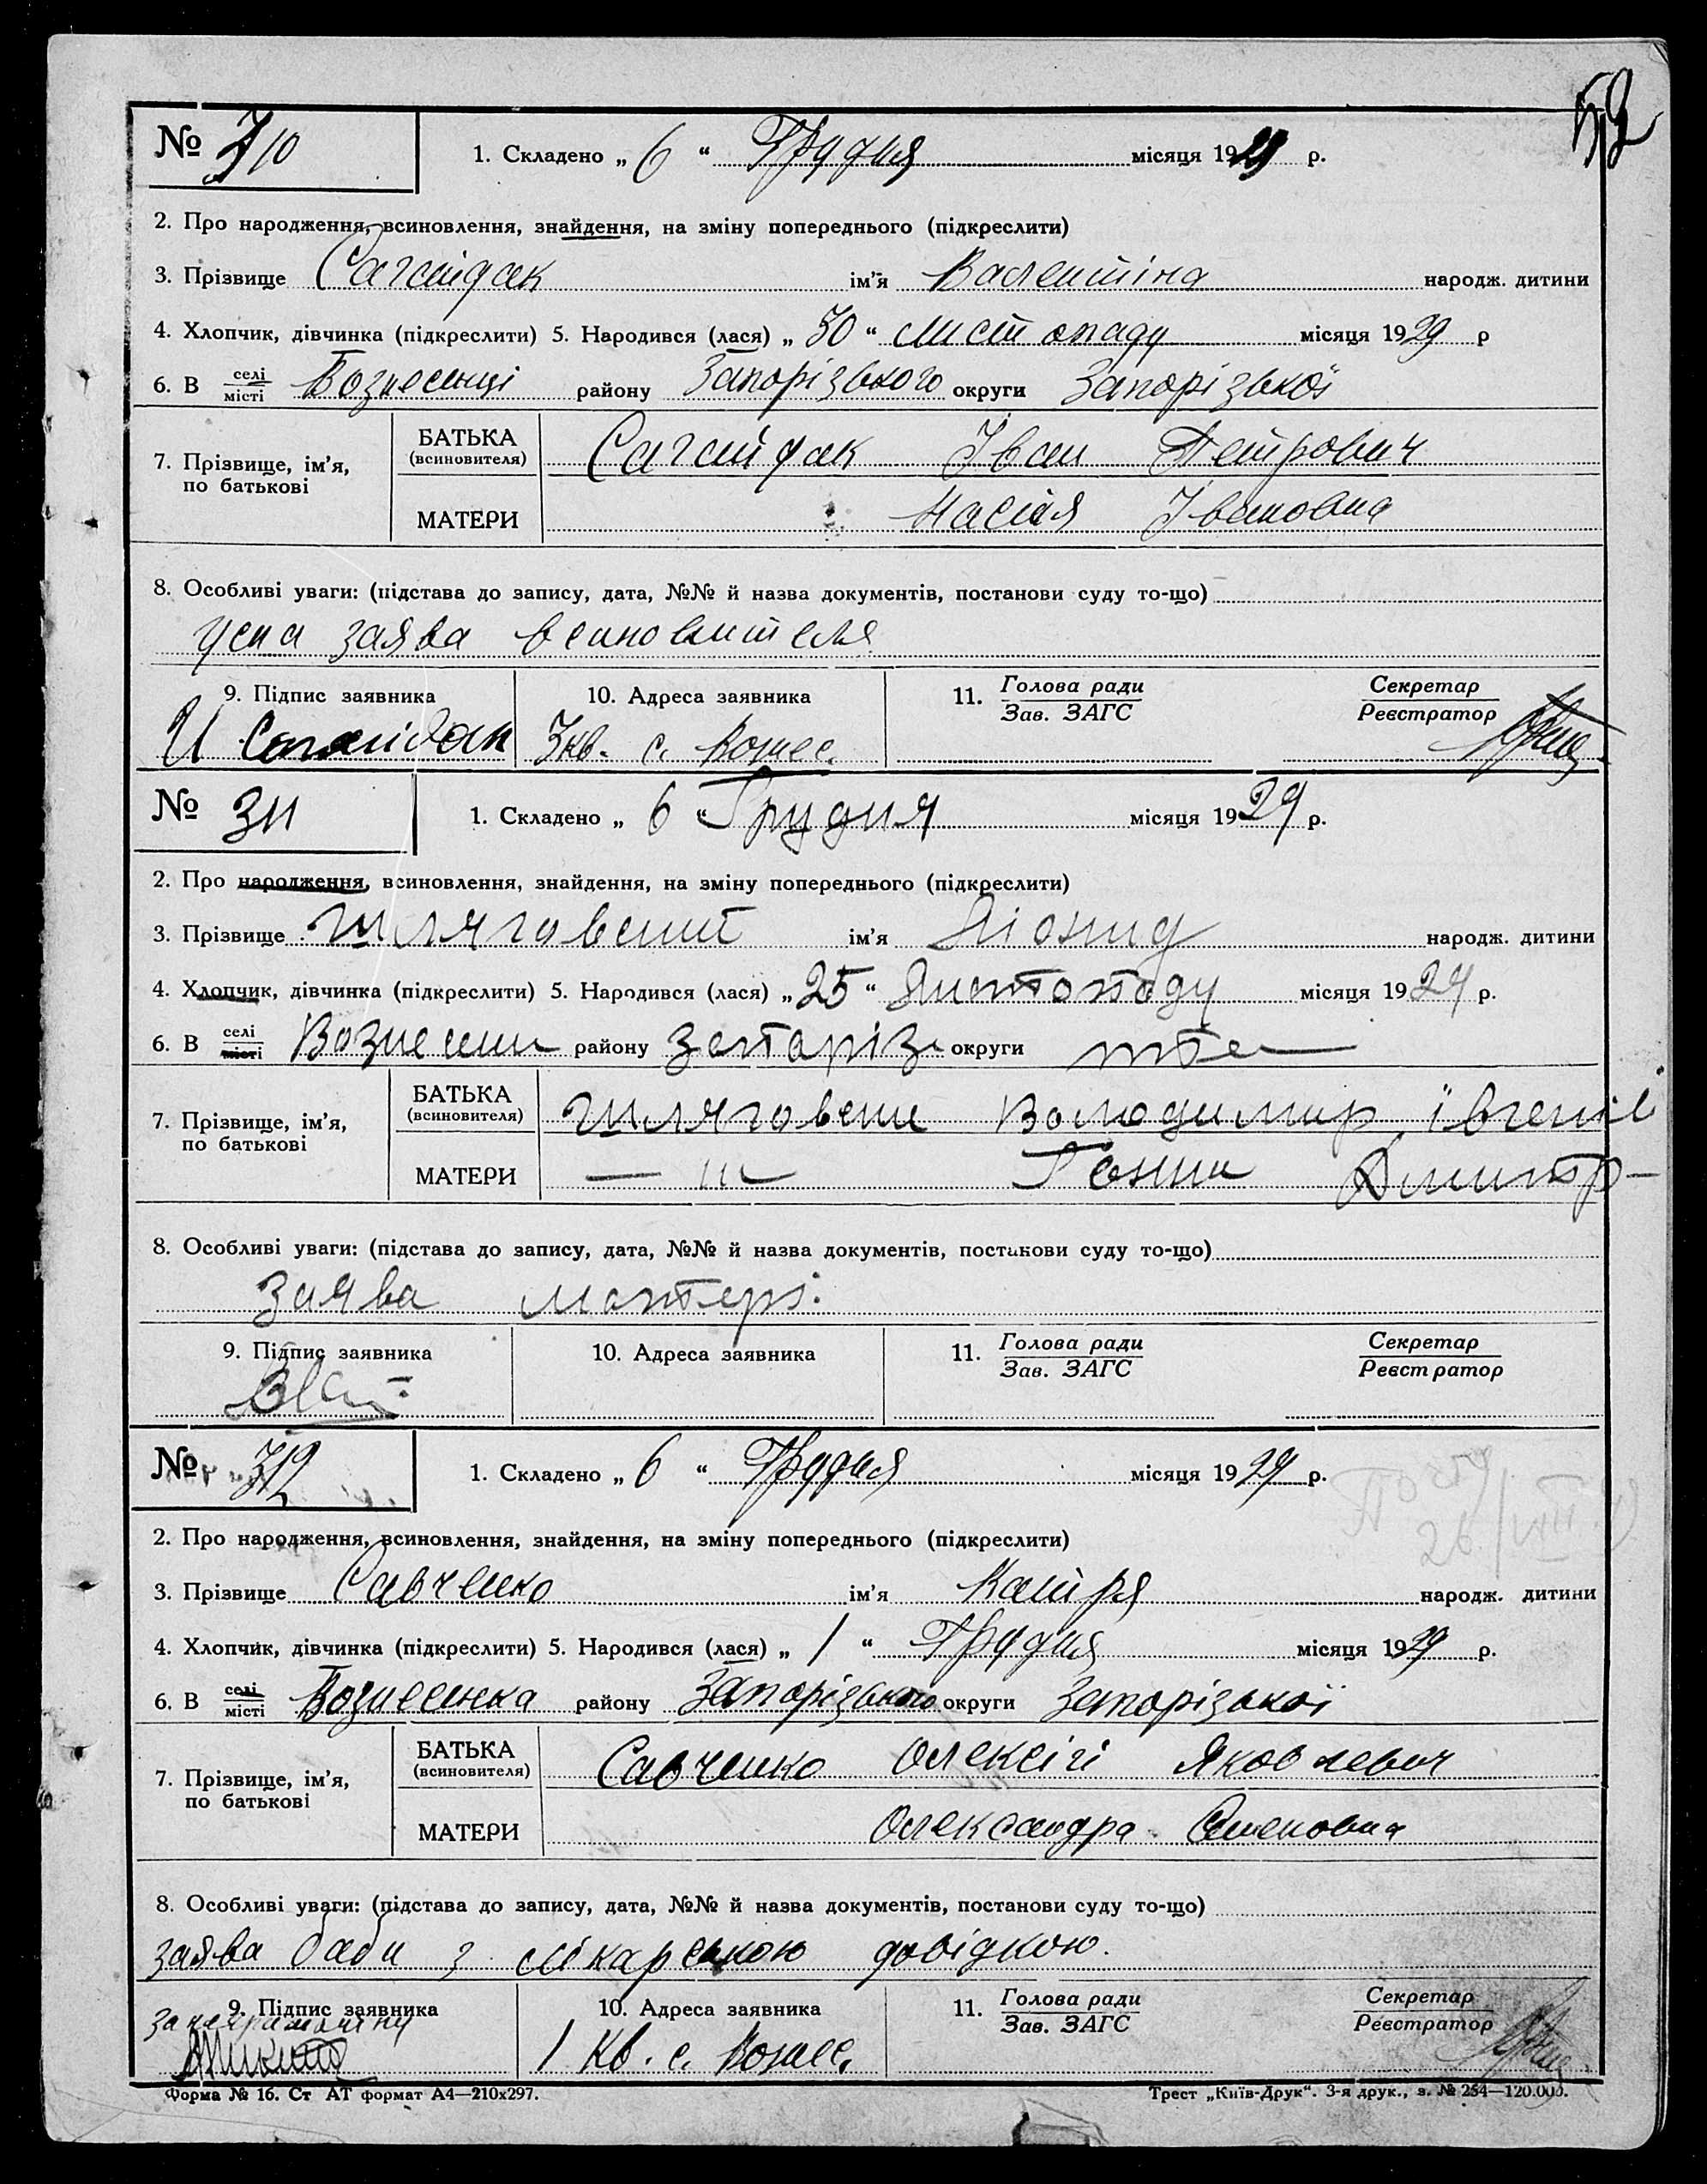 52
№ 310
1. Складено „ 6 “ Грудня місяця 1929 р.
2. Про народження, всиновлення, знайдення, на зміну попереднього (підкреслити)
3. Прізвище Сагайдак ім’я Валентіна народж. дитини
4. Хлопчик, дівчинка (підкреслити) 5. Народився (лася) „ 30 “ листопаду місяця 1929 р
6. В селі місті Вознесенці району Запорізького округи Запорізької
7. Прізвище, ім’я, по батькові
БАТЬКА (всиновителя) Сагайдак Іван Петрович
МАТЕРИ Настя Івановна
8. Особливі уваги: (підстава до запису, дата, №№ й назва документів, постанови суду то-що)
усна заява всиновителя
9. Підпис заявника 10. Адреса заявника 11. Голова ради Зав. ЗАГС Секретар Реєстратор
И Сагайдак 3 кв. с. Вознес.
№ 311
1. Складено „ 6 “ Грудня місяця 1929 р.
2. Про народження, всиновлення, знайдення, на зміну попереднього (підкреслити)
3. Прізвище Шляговский ім’я Ліонид народж. дитини
4. Хлопчик, дівчинка (підкреслити) 5. Народився (лася) „ 25 “ Листопаду місяця 1929 р.
6. В селі місті Вознесени району Запоріз округи
7. Прізвище, ім’я, по батькові
БАТЬКА (всиновителя) Шляговски Володимир Івгеніє
МАТЕРИ — ш Ганна Дмитр-
8. Особливі уваги: (підстава до запису, дата, №№ й назва документів, постанови суду то-що)
заява матері
9. Підпис заявника 10. Адреса заявника 11. Голова ради Зав. ЗАГС Секретар Реєстратор
№ 312
1. Складено „ 6 “ Грудня місяця 1929 р.
2. Про народження, всиновлення, знайдення, на зміну попереднього (підкреслити)
3. Прізвище Савченко ім’я Катря народж. дитини
4. Хлопчик, дівчинка (підкреслити) 5. Народився (лася) „ 1 “ Грудня місяця 1929 р.
6. В селі місті Вознесенка району Запорізького округи Запорізької
7. Прізвище, ім’я, по батькові
БАТЬКА (всиновителя) Савченко Олексій Яковлевич
МАТЕРИ Олександра Семеновна
8. Особливі уваги: (підстава до запису, дата, №№ й назва документів, постанови суду то-що)
заява баби з лікарською довідкою.
9. Підпис заявника 10. Адреса заявника 11. Голова ради Зав. ЗАГС Секретар Реєстратор
за неграмотну
1 кв. с. Вознес.
Форма № 16. Ст АТ формат А4—210х297. Трест „Київ-Друк“. 3-я друк., з. № 254—120.000.